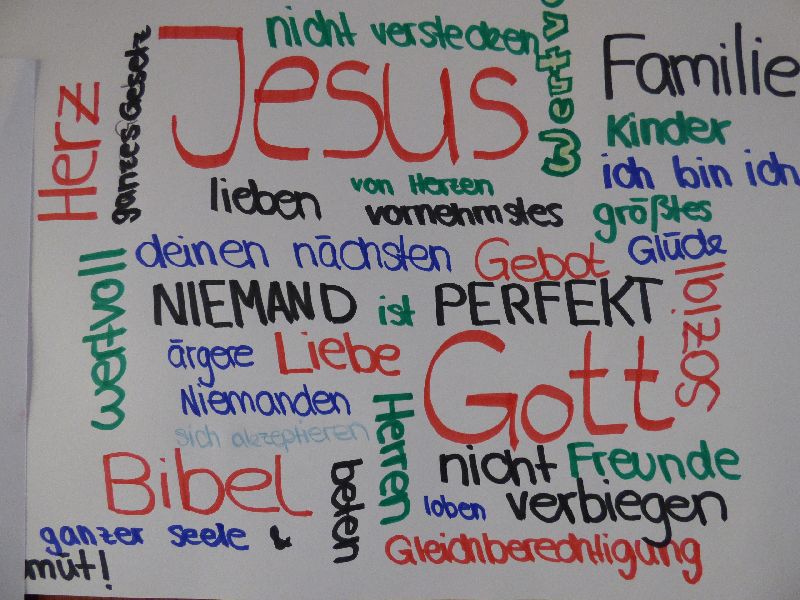 nicht verstecken
Jesus
Familie
Herz
ganzes Gesetz
Kinder
ich bin ich
lieben
von Herzen
vornehmstes
größtes
deinen nächsten
Gebot
Glück
wertvoll
NIEMAND ist PERFEKT
sozial
ärgere
Liebe
Niemanden
Gott
sich akzeptieren
Herren
Bibel
beten
nicht Freunde
loben
verbiegen
ganzer seele &
Gleichberechtigung
mut!